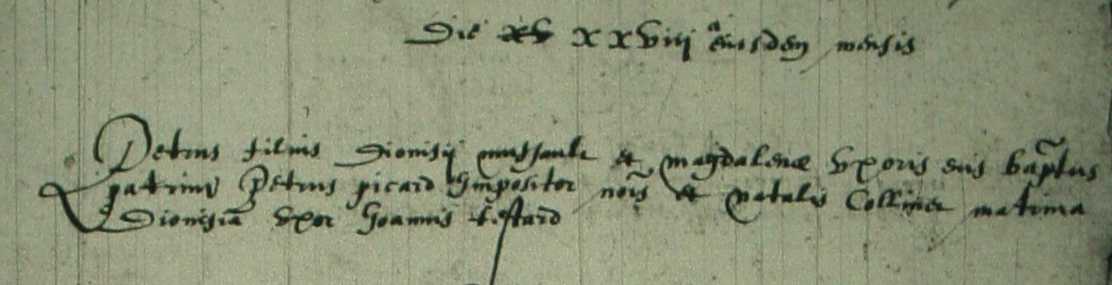 Die xv xxviij eiusdem mensis
Petrus filius Dionisij et magdalenæ Vxoris eius bapt̃us
patrini Petrus picard Impositor nois̃ et natalis Collinet matrina
Dionisia Vxor Joannis testard